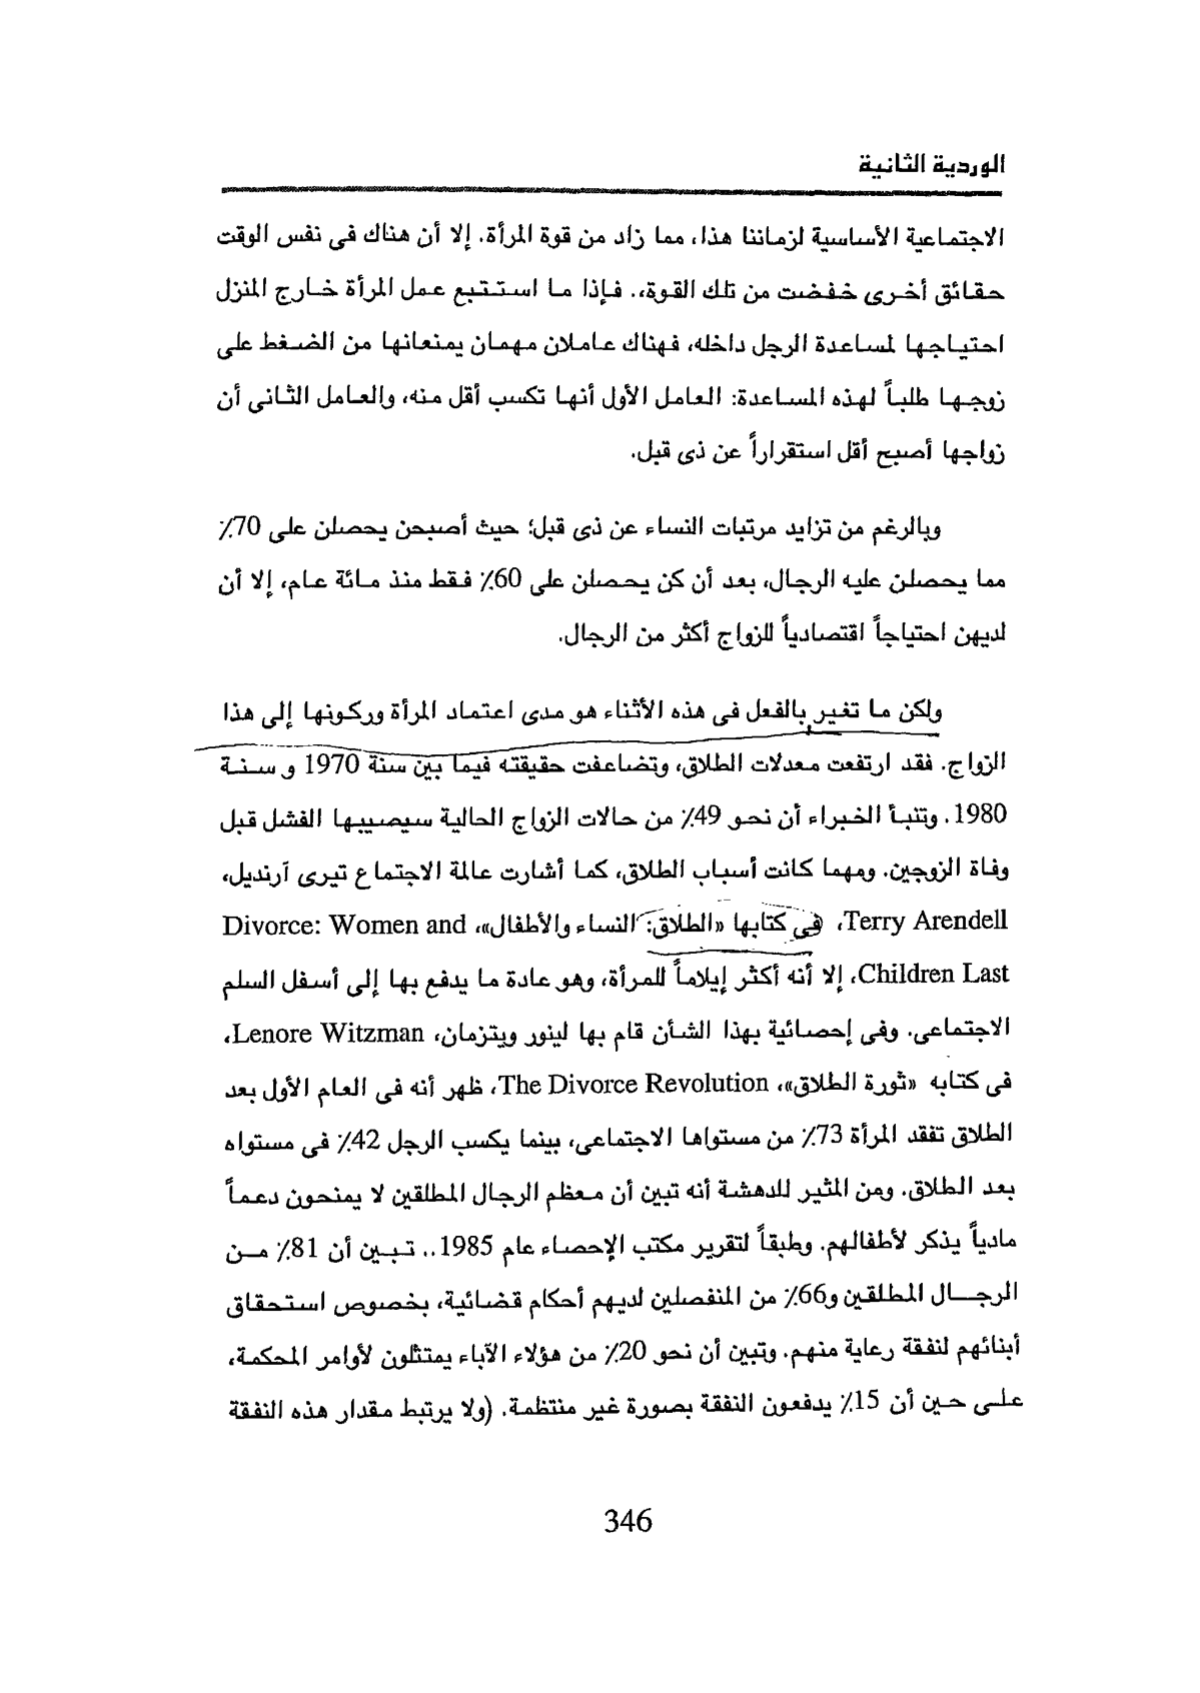 الوردية الثانية
الاجتماعية الأساسية لزماننا هذا، مما زاد من قوة المرأة. إلا أن هناك فى نفس الوقت
حقائق أخرى خفضت من تلك القوة،. فإذا ما استتبع عمل المرأة خارج المنزل
احتياجها لمساعدة الرجل داخله، فهناك عاملان مهمان يمنعانها من الضغط على
زوجها طلباً لهذه المساعدة: العامل الأول أنها تكسب أقل منه، والعامل الثانى أن
زواجها أصبح أقل استقراراً عن ذى قبل.
وبالرغم من تزايد مرتبات النساء عن ذى قبل؛ حيث أصبحن يحصلن على 70٪
مما يحصلن عليه الرجال، بعد أن كن يحصلن على 60٪ فقط منذ مائة عام، إلا أن
لديهن احتياجاً اقتصادياً للزواج أكثر من الرجال.
ولكن ما تغير بالفعل فى هذه الأثناء هو مدى اعتماد المرأة وركونها إلى هذا
الزواج. فقد ارتفعت معدلات الطلاق، وتضاعفت حقيقته فيما بين سنة 1970 و سنة
1980. وتنبأ الخبراء أن نحو 49٪ من حالات الزواج الحالية سيصيبها الفشل قبل
وفاة الزوجين. ومهما كانت أسباب الطلاق، كما أشارت عالمة الاجتماع تيرى آرنديل،
Terry Arendell، فى كتابها «الطلاق: النساء والأطفال»، Divorce: Women and
Children Last، إلا أنه أكثر إيلاماً للمرأة، وهو عادة ما يدفع بها إلى أسفل السلم
الاجتماعى. وفى إحصائية بهذا الشأن قام بها لينور ويتزمان، Lenore Witzman،
فى كتابه «ثورة الطلاق»، The Divorce Revolution، ظهر أنه فى العام الأول بعد
الطلاق تفقد المرأة 73٪ من مستواها الاجتماعى، بينما يكسب الرجل 42٪ فى مستواه
بعد الطلاق. ومن المثير للدهشة أنه تبين أن معظم الرجال المطلقين لا يمنحون دعماً
مادياً يذكر لأطفالهم. وطبقاً لتقرير مكتب الإحصاء عام 1985.. تبين أن 81٪ من
الرجال المطلقين و66٪ من المنفصلين لديهم أحكام قضائية، بخصوص استحقاق
أبنائهم لنفقة رعاية منهم. وتبين أن نحو 20٪ من هؤلاء الآباء يمتثلون لأوامر المحكمة،
على حين أن 15٪ يدفعون النفقة بصورة غير منتظمة. (ولا يرتبط مقدار هذه النفقة
346